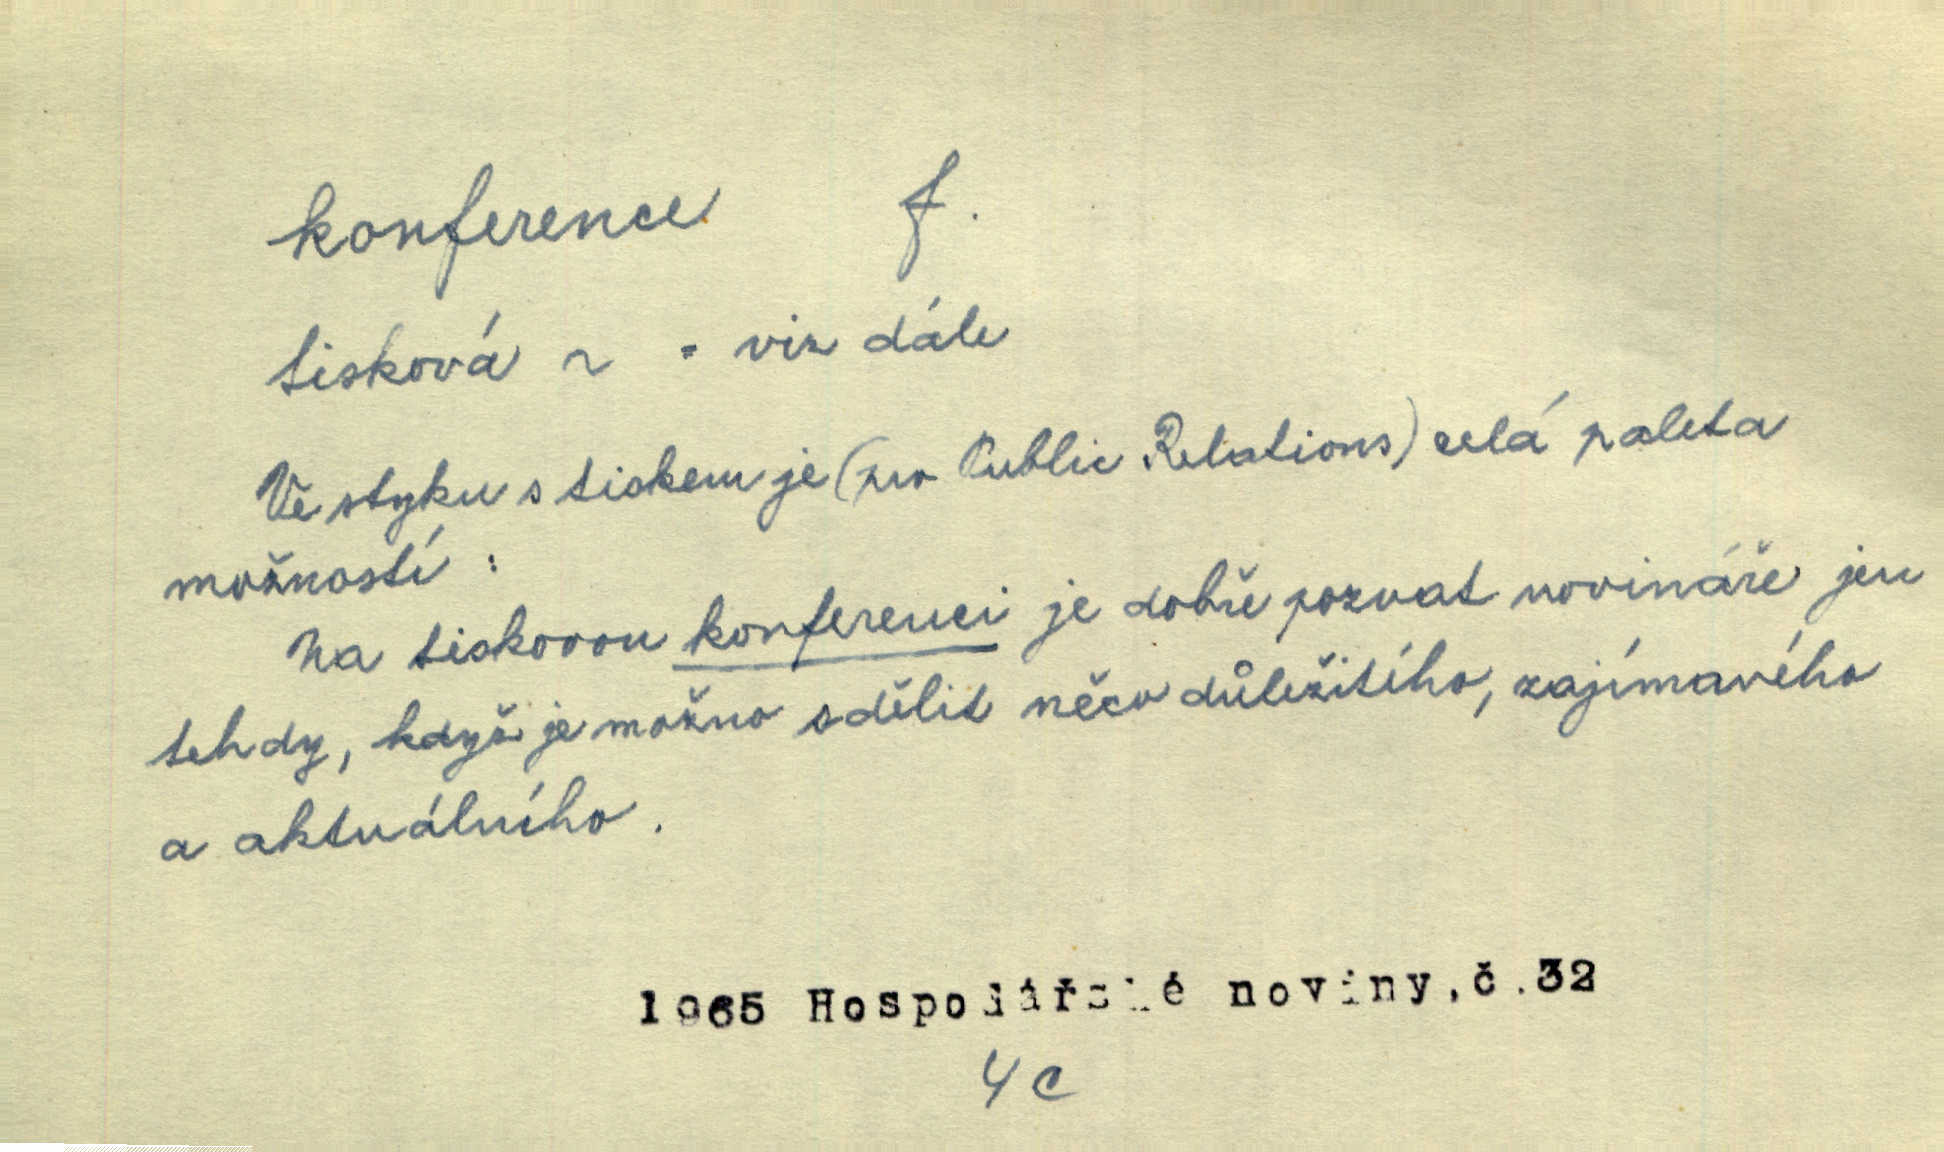 konference f.
tisková ~ = viz dále
Ve styku s tiskem je (pro Public Relations) celá paleta
možností :
Na tiskovou konferenci je dobře pozvat novináře jen
tehdy, když je možno sdělit něco důležitího, zajímavého
a aktuálního.
1965 Hospodářské noviny, č.32
4c